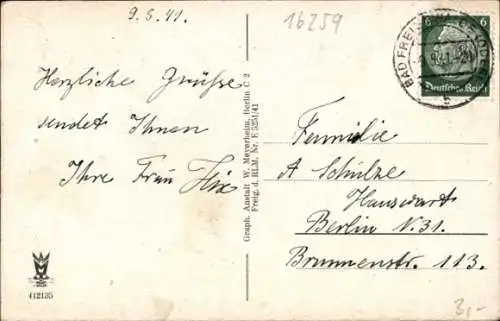 9.5.41.
16259
Herzliche Grüße
sendet Ihnen
Ihre Frau Hix
Graph. Anstalt W. Meyerheim, Berlin C 2
Freig. d. RLM. Nr. E 5251/41
6 6
Deutsches Reich
BAD FREIENWALDE (ODER)
b
Familie
A Schulze
Hauswart
Berlin N.31.
Brunnenstr. 113.
412135
3,-